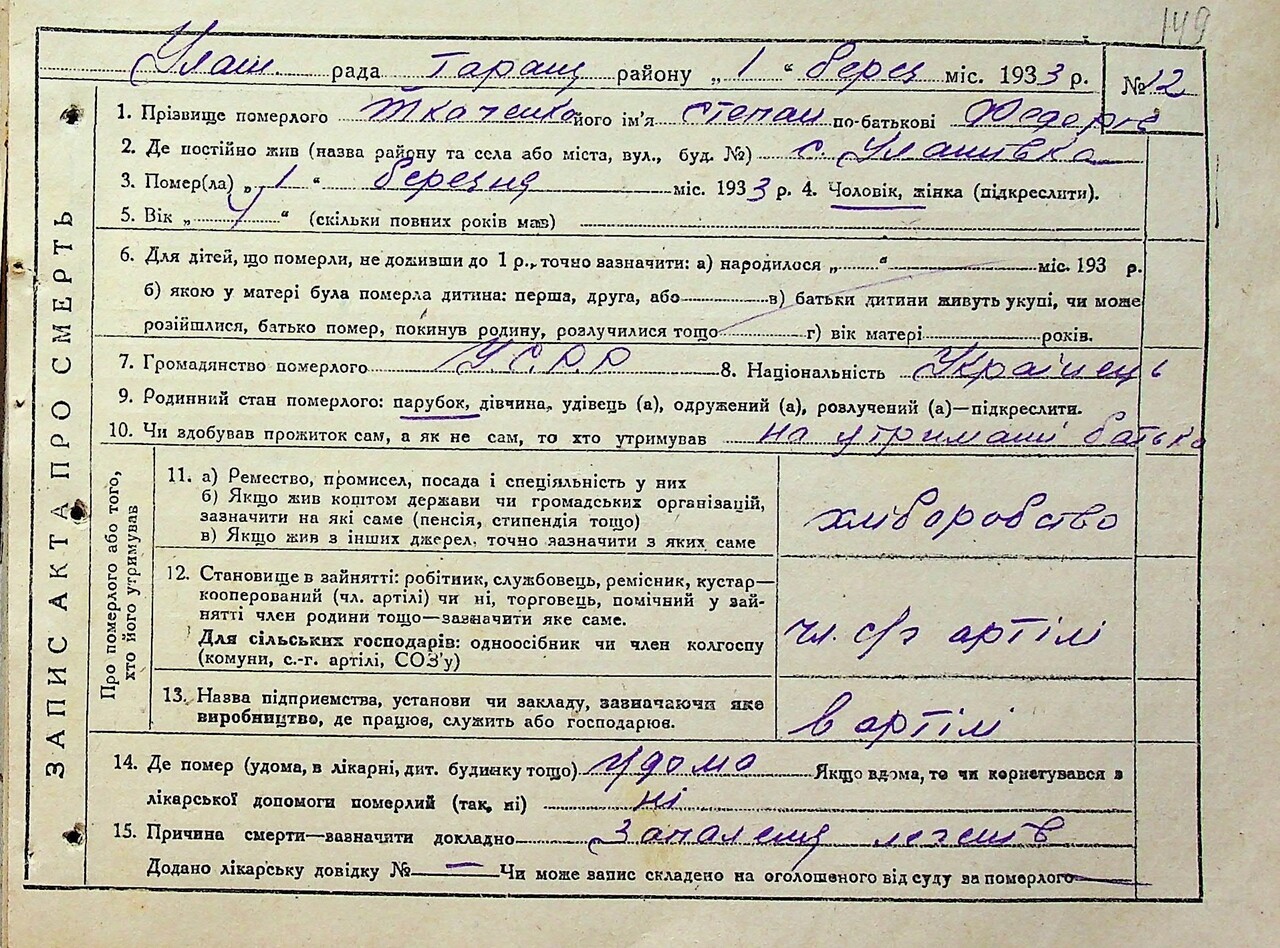 149
Улаш. рада Таращ району „ 1 “ берез міс. 1933 р. № 12
ЗАПИС АКТА ПРО СМЕРТЬ
1. Прізвище померлого Ткаченко його ім'я Степан по-батькові Федорів
2. Де постійно жив (назва району та села або міста, вул., буд. №) с. Улашівка
3. Помер(ла) „ 1 “ березня міс. 1933 р. 4. Чоловік, жінка (підкреслити).
5. Вік „ “ (скільки повних років мав)
6. Для дітей, що померли, не доживши до 1 р., точно зазначити: а) народилося „ “ міс. 193 р.
б) якою у матері була померла дитина: перша, друга, або в) батьки дитини живуть укупі, чи може
розійшлися, батько помер, покинув родину, розлучилися тощо г) вік матері років.
7. Громадянство померлого У.С.Р.Р 8. Національність Українець
9. Родинний стан померлого: парубок, дівчина, удівець (а), одружений (а), розлучений (а)—підкреслити.
10. Чи здобував прожиток сам, а як не сам, то хто утримував на утримані батька
Про померлого або того,
хто його утримував
11. а) Ремество, промисел, посада і спеціяльність у них
б) Якщо жив коштом держави чи громадських організацій,
зазначити на які саме (пенсія, стипендія тощо)
в) Якщо жив з інших джерел, точно зазначити з яких саме
хліборобство
12. Становище в зайнятті: робітник, службовець, ремісник, кустар—
кооперований (чл. артілі) чи ні, торговець, помічний у зай-
нятті член родини тощо—зазначити яке саме.
Для сільських господарів: одноосібник чи член колгоспу
(комуни, с.-г. артілі, СОЗ'у)
чл. с/г артілі
13. Назва підприємства, установи чи закладу, зазначаючи яке
виробництво, де працює, служить або господарює.
в артілі
14. Де помер (удома, в лікарні, дит. будинку тощо) удома Якщо вдома, то чи користувався з
лікарської допомоги померлий (так, ні) ні
15. Причина смерти—зазначити докладно Запаленя легенів
Додано лікарську довідку № — Чи може запис складено на оголошеного від суду за померлого —